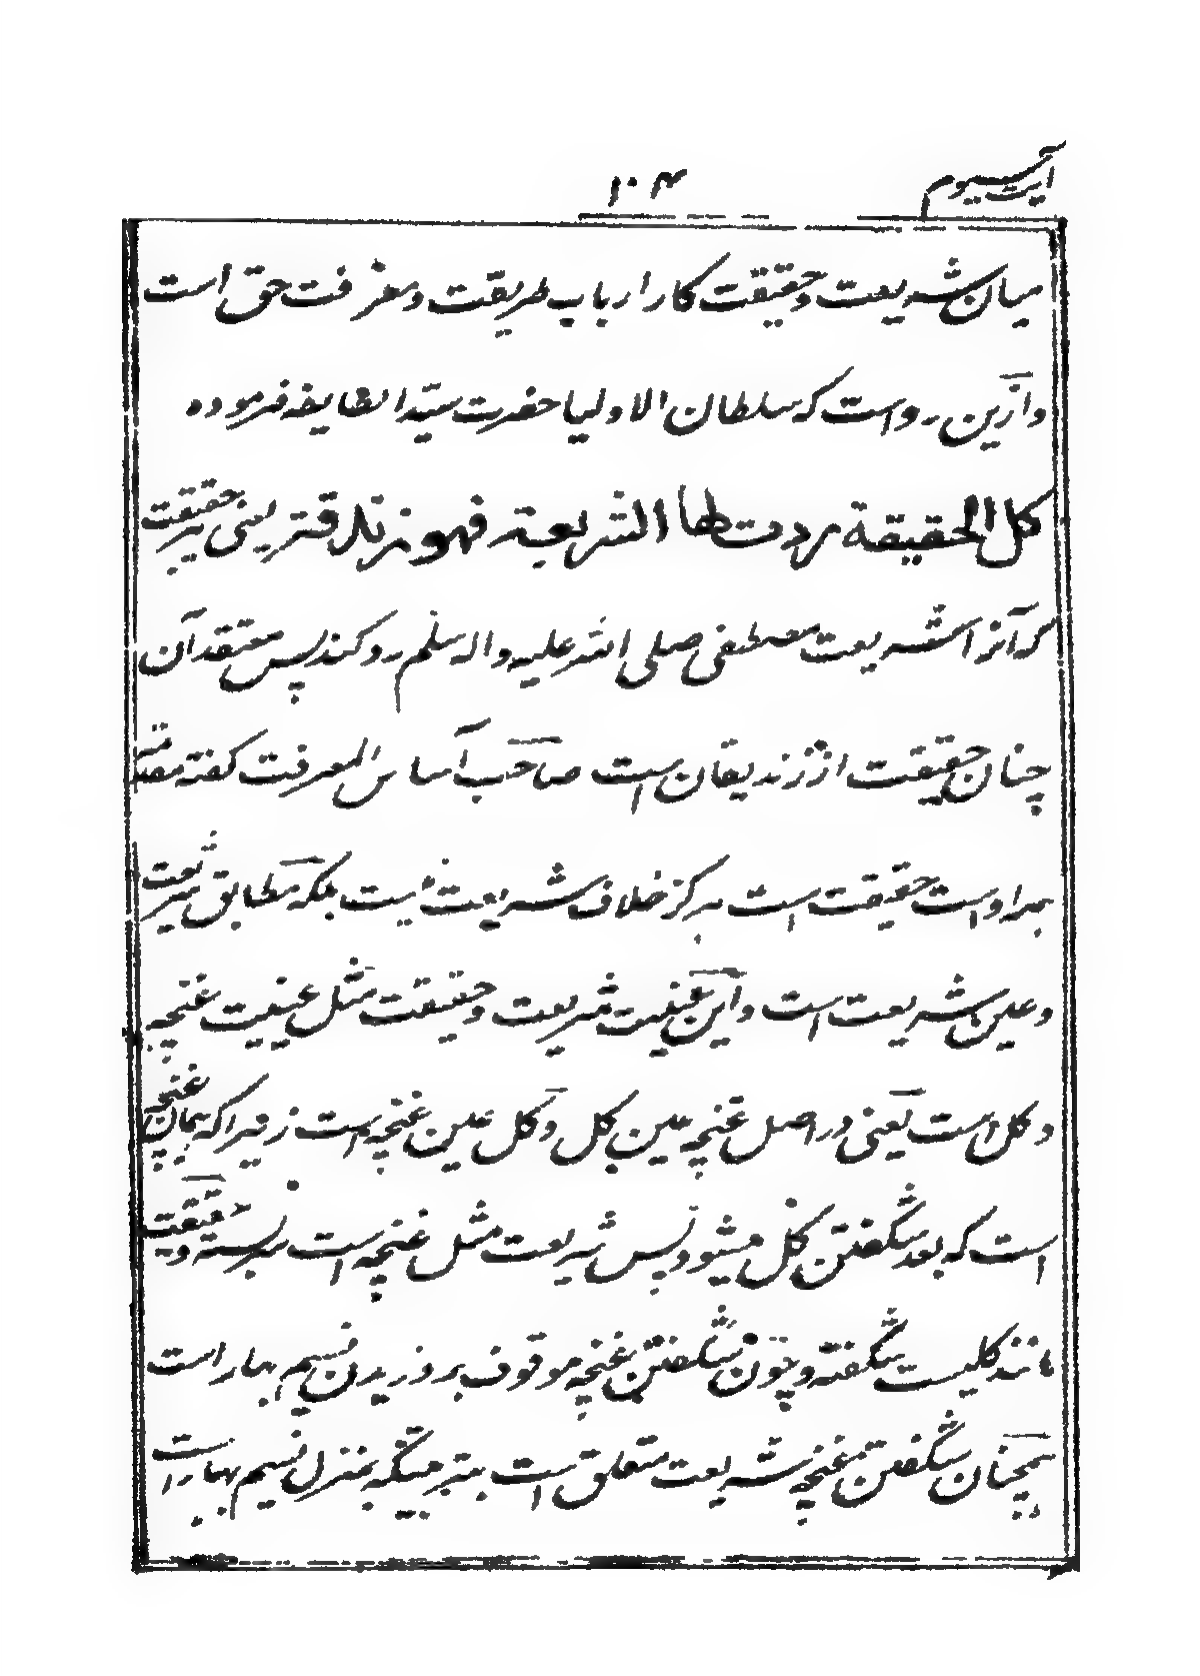 آیت سیوم
۱۰۴
میان شریعت و حقیقت کار ارباب طریقت و معرفت حق است
و ازین رو است که سلطان الاولیا حضرت سید الطایفه فرموده
کل الحقیقة ردت لها الشریعة فهو زندقة یعنی هر حقیقت
که آنرا شریعت مصطفی صلی الله علیه و اله سلم رد کند پس معتقد آن
چنان حقیقت از زندیقان است صاحب اساس المعرفت گفته
بهر او است حقیقت است هرگز خلاف شریعت نیست بلکه مطابق شریعت
و عین شریعت است و این عینیت شریعت و حقیقت مثل عینیت غنچه
و گل است یعنی در اصل غنچه عین گل و گل عین غنچه است زیراکه همان غنچه
است که بعد شگفتن گل میشود پس شریعت مثل غنچه است سربسته و حقیقت
مانند گلیست شگفته و چون شگفتن غنچه موقوف بر وزیدن نسیم بهار است
همچنان شگفتن غنچه شریعت متعلق است بتربیتیکه بمنزل نسیم بهار است